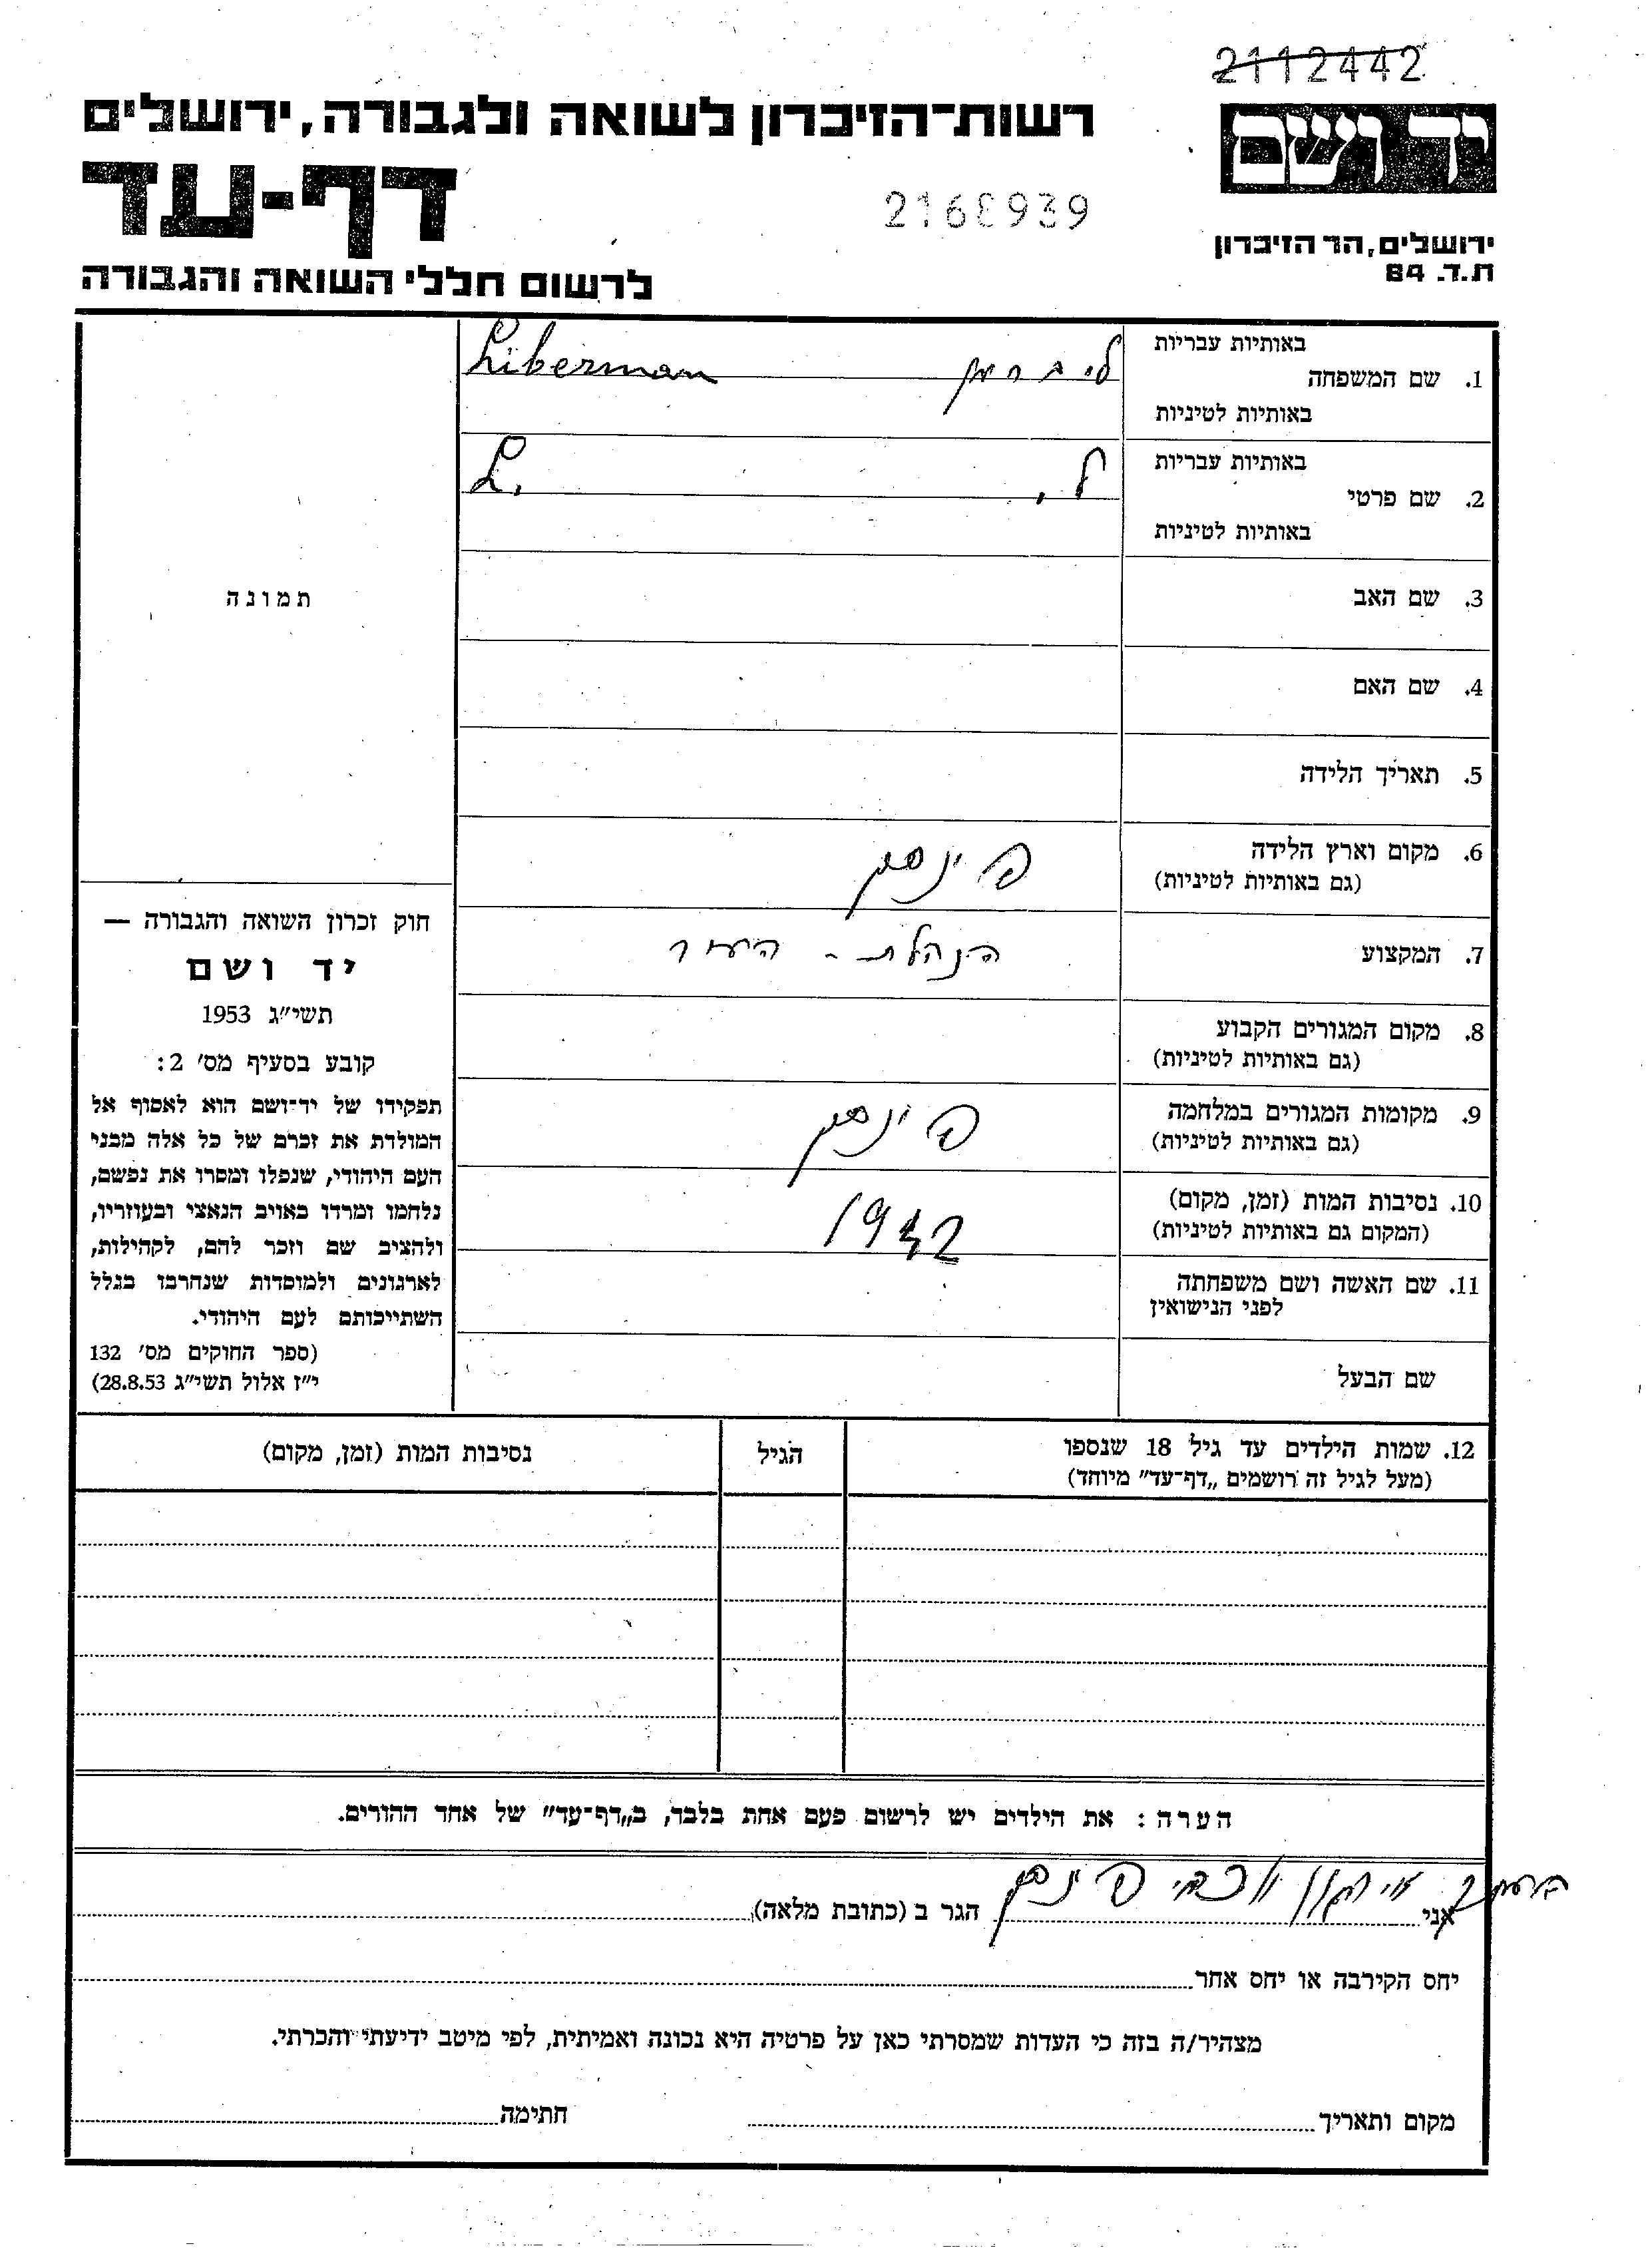 2112442
יד ושם
רשות־הזיכרון לשואה ולגבורה, ירושלים
דף-עד
2168939
ירושלים, הר הזיכרון
ת.ד. 84
לרשום חללי השואה והגבורה
באותיות עבריות
1. שם המשפחה
ליברמן Liberman
באותיות לטיניות
באותיות עבריות
2. שם פרטי
ל. L.
באותיות לטיניות
3. שם האב
4. שם האם
5. תאריך הלידה
6. מקום וארץ הלידה
(גם באותיות לטיניות)
פינסק
7. המקצוע
הנהלת - היער
8. מקום המגורים הקבוע
(גם באותיות לטיניות)
9. מקומות המגורים במלחמה
(גם באותיות לטיניות)
פינסק
10. נסיבות המות (זמן, מקום)
(המקום גם באותיות לטיניות)
1942
11. שם האשה ושם משפחתה
לפני הנישואין
שם הבעל
תמונה
חוק זכרון השואה והגבורה —
יד ושם
תשי״ג 1953
קובע בסעיף מס׳ 2:
תפקידו של יד־ושם הוא לאסוף אל
המולדת את זכרם של כל אלה מבני
העם היהודי, שנפלו ומסרו את נפשם,
נלחמו ומרדו באויב הנאצי ובעוזריו,
ולהציב שם וזכר להם, לקהילות,
לארגונים ולמוסדות שנחרבו בגלל
השתייכותם לעם היהודי.
(ספר החוקים מס׳ 132
י״ז אלול תשי״ג 28.8.53)
12. שמות הילדים עד גיל 18 שנספו
(מעל לגיל זה רושמים „דף־עד״ מיוחד)
הגיל
נסיבות המות (זמן, מקום)
הערה: את הילדים יש לרשום פעם אחת בלבד, ב„דף־עד״ של אחד ההורים.
ארגון יוצאי פינסק
אני הגר ב (כתובת מלאה)
יחס הקירבה או יחס אחר
מצהיר/ה בזה כי העדות שמסרתי כאן על פרטיה היא נכונה ואמיתית, לפי מיטב ידיעתי והכרתי.
מקום ותאריך חתימה